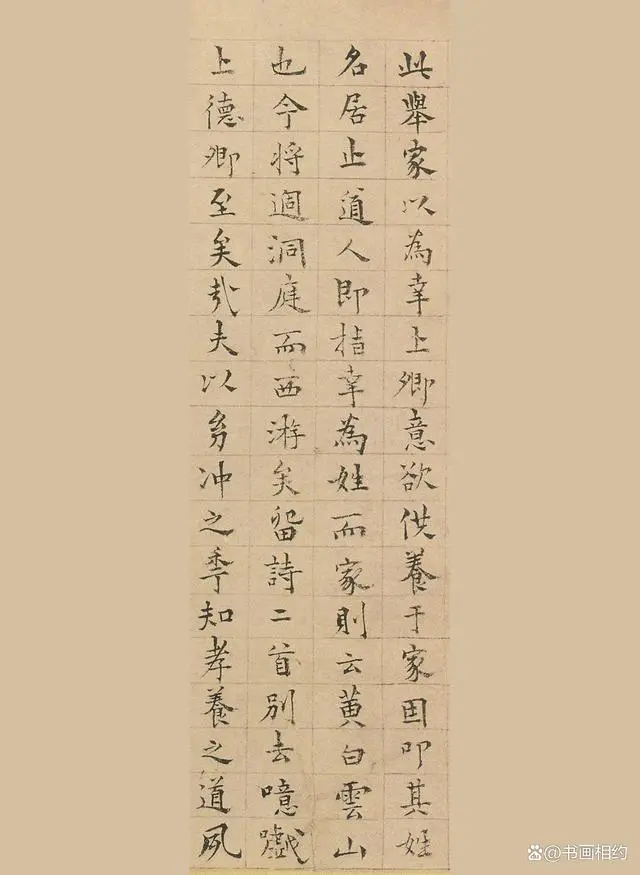 此舉家以為幸上卿意欲供養于家因叩其姓
名居止道人即指幸為姓而家則云黄白雲山
也今將過洞庭而西游矣留詩二首別去噫戲
上德卿至矣哉夫以幼冲之秊知孝養之道夙
@书画相约